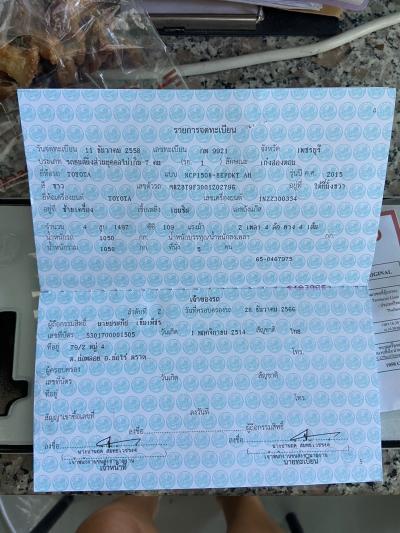 4
รายการจดทะเบียน
วันจดทะเบียน 11 ธันวาคม 2558 เลขทะเบียน กพ 9921 จังหวัด เพชรบุรี
ประเภท รถยนต์นั่งส่วนบุคคลไม่เกิน 7 คน (รย. 1 ) ลักษณะ เก๋งสองตอน
ยี่ห้อรถ TOYOTA แบบ รุ่นปี ค.ศ. 2015
สี ขาว เลขตัวรถ อยู่ที่ ใต้ที่นั่งขวา
ยี่ห้อเครื่องยนต์ TOYOTA เลขเครื่องยนต์ 1NZZ300354
อยู่ที่ ข้างเครื่อง เชื้อเพลิง เลขถังแก๊ส
จำนวน 4 สูบ 1497 ซีซี 109 แรงม้า 2 เพลา 4 ล้อ ยาง 4 เส้น
น้ำหนักรถ 1050 กก. น้ำหนักบรรทุก/น้ำหนักลงเพลา กก.
น้ำหนักรวม 1050 กก. ที่นั่ง 5 คน
65-0467975
เจ้าของรถ
ลำดับที่ 2 วันที่ครอบครองรถ 28 ธันวาคม 2566
ผู้ถือกรรมสิทธิ์
เลขที่บัตร 5301700001505 วันเกิด 1 พฤศจิกายน 2514 สัญชาติ ไทย
ที่อยู่ 79/2 หมู่ 4 โทร.
ผู้ครอบครอง
เลขที่บัตร วันเกิด สัญชาติ
ที่อยู่ โทร.
สัญญาเช่าซื้อเลขที่ ลงวันที่
ลงชื่อ ผู้ถือกรรมสิทธิ์
ลงชื่อ ลงชื่อ
เจ้าหน้าที่ นายทะเบียน
5
ORIGINAL